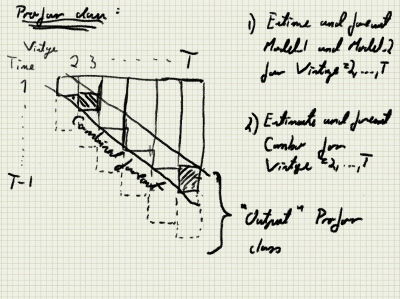 Profor class :
Vintge
Time 2 3 ........ T
1
T-1
Combined forecast
1) Estime and forecast
Model.1 and Model.2
for Vintge =2,...,T
2) Estimate and forecast
Combor for
Vintge =2,...,T
"Output" Profor
class